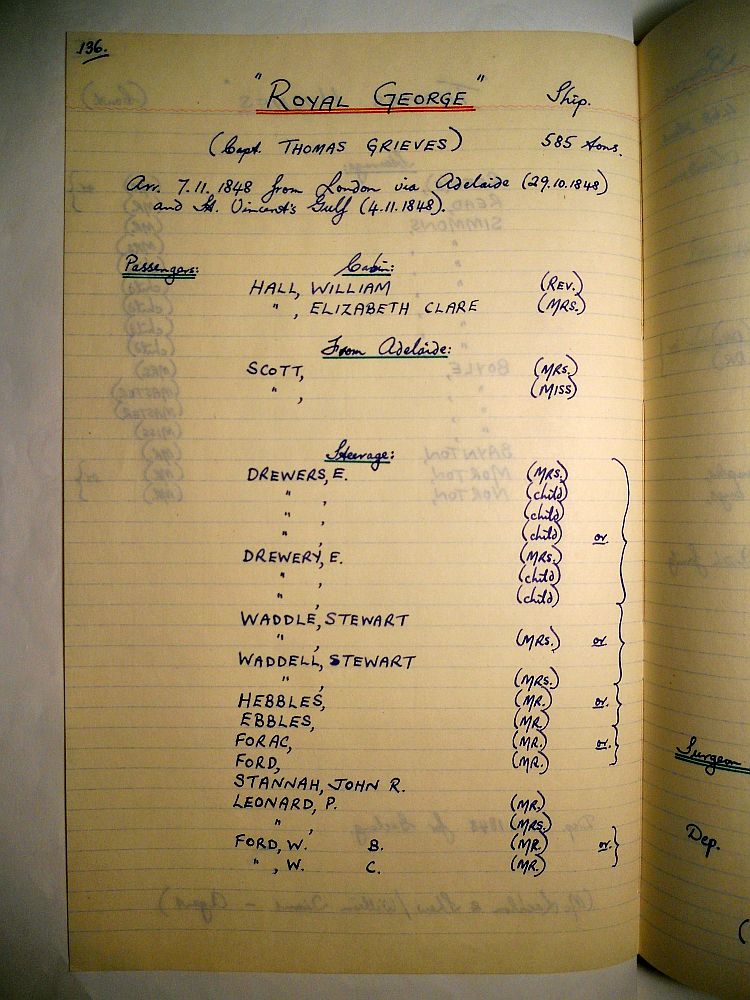 136.
"ROYAL GEORGE" Ship.
(Capt. THOMAS GRIEVES) 585 tons.
Arr. 7.11.1848 from London via Adelaide (29.10.1848)
and St. Vincent's Gulf (4.11.1848).
Passengers: Cabin:
HALL, WILLIAM (REV.)
" , ELIZABETH CLARE (MRS.)
From Adelaide:
SCOTT, (MRS.)
" , (MISS)
Steerage:
DREWERS, E. (MRS.)
" , (child)
" , (child)
" , (child) or
DREWERY, E. (MRS.)
" , (child)
" , (child)
WADDLE, STEWART
" , (MRS.) or
WADDELL, STEWART
" , (MRS.)
HEBBLES, (MR.) or
EBBLES, (MR.)
FORAC, (MR.) or
FORD, (MR.)
STANNAH, JOHN R.
LEONARD, P. (MR.)
" , (MRS.)
FORD, W. B. (MR.) or
" , W. C. (MR.)
Surgeon
Dep.